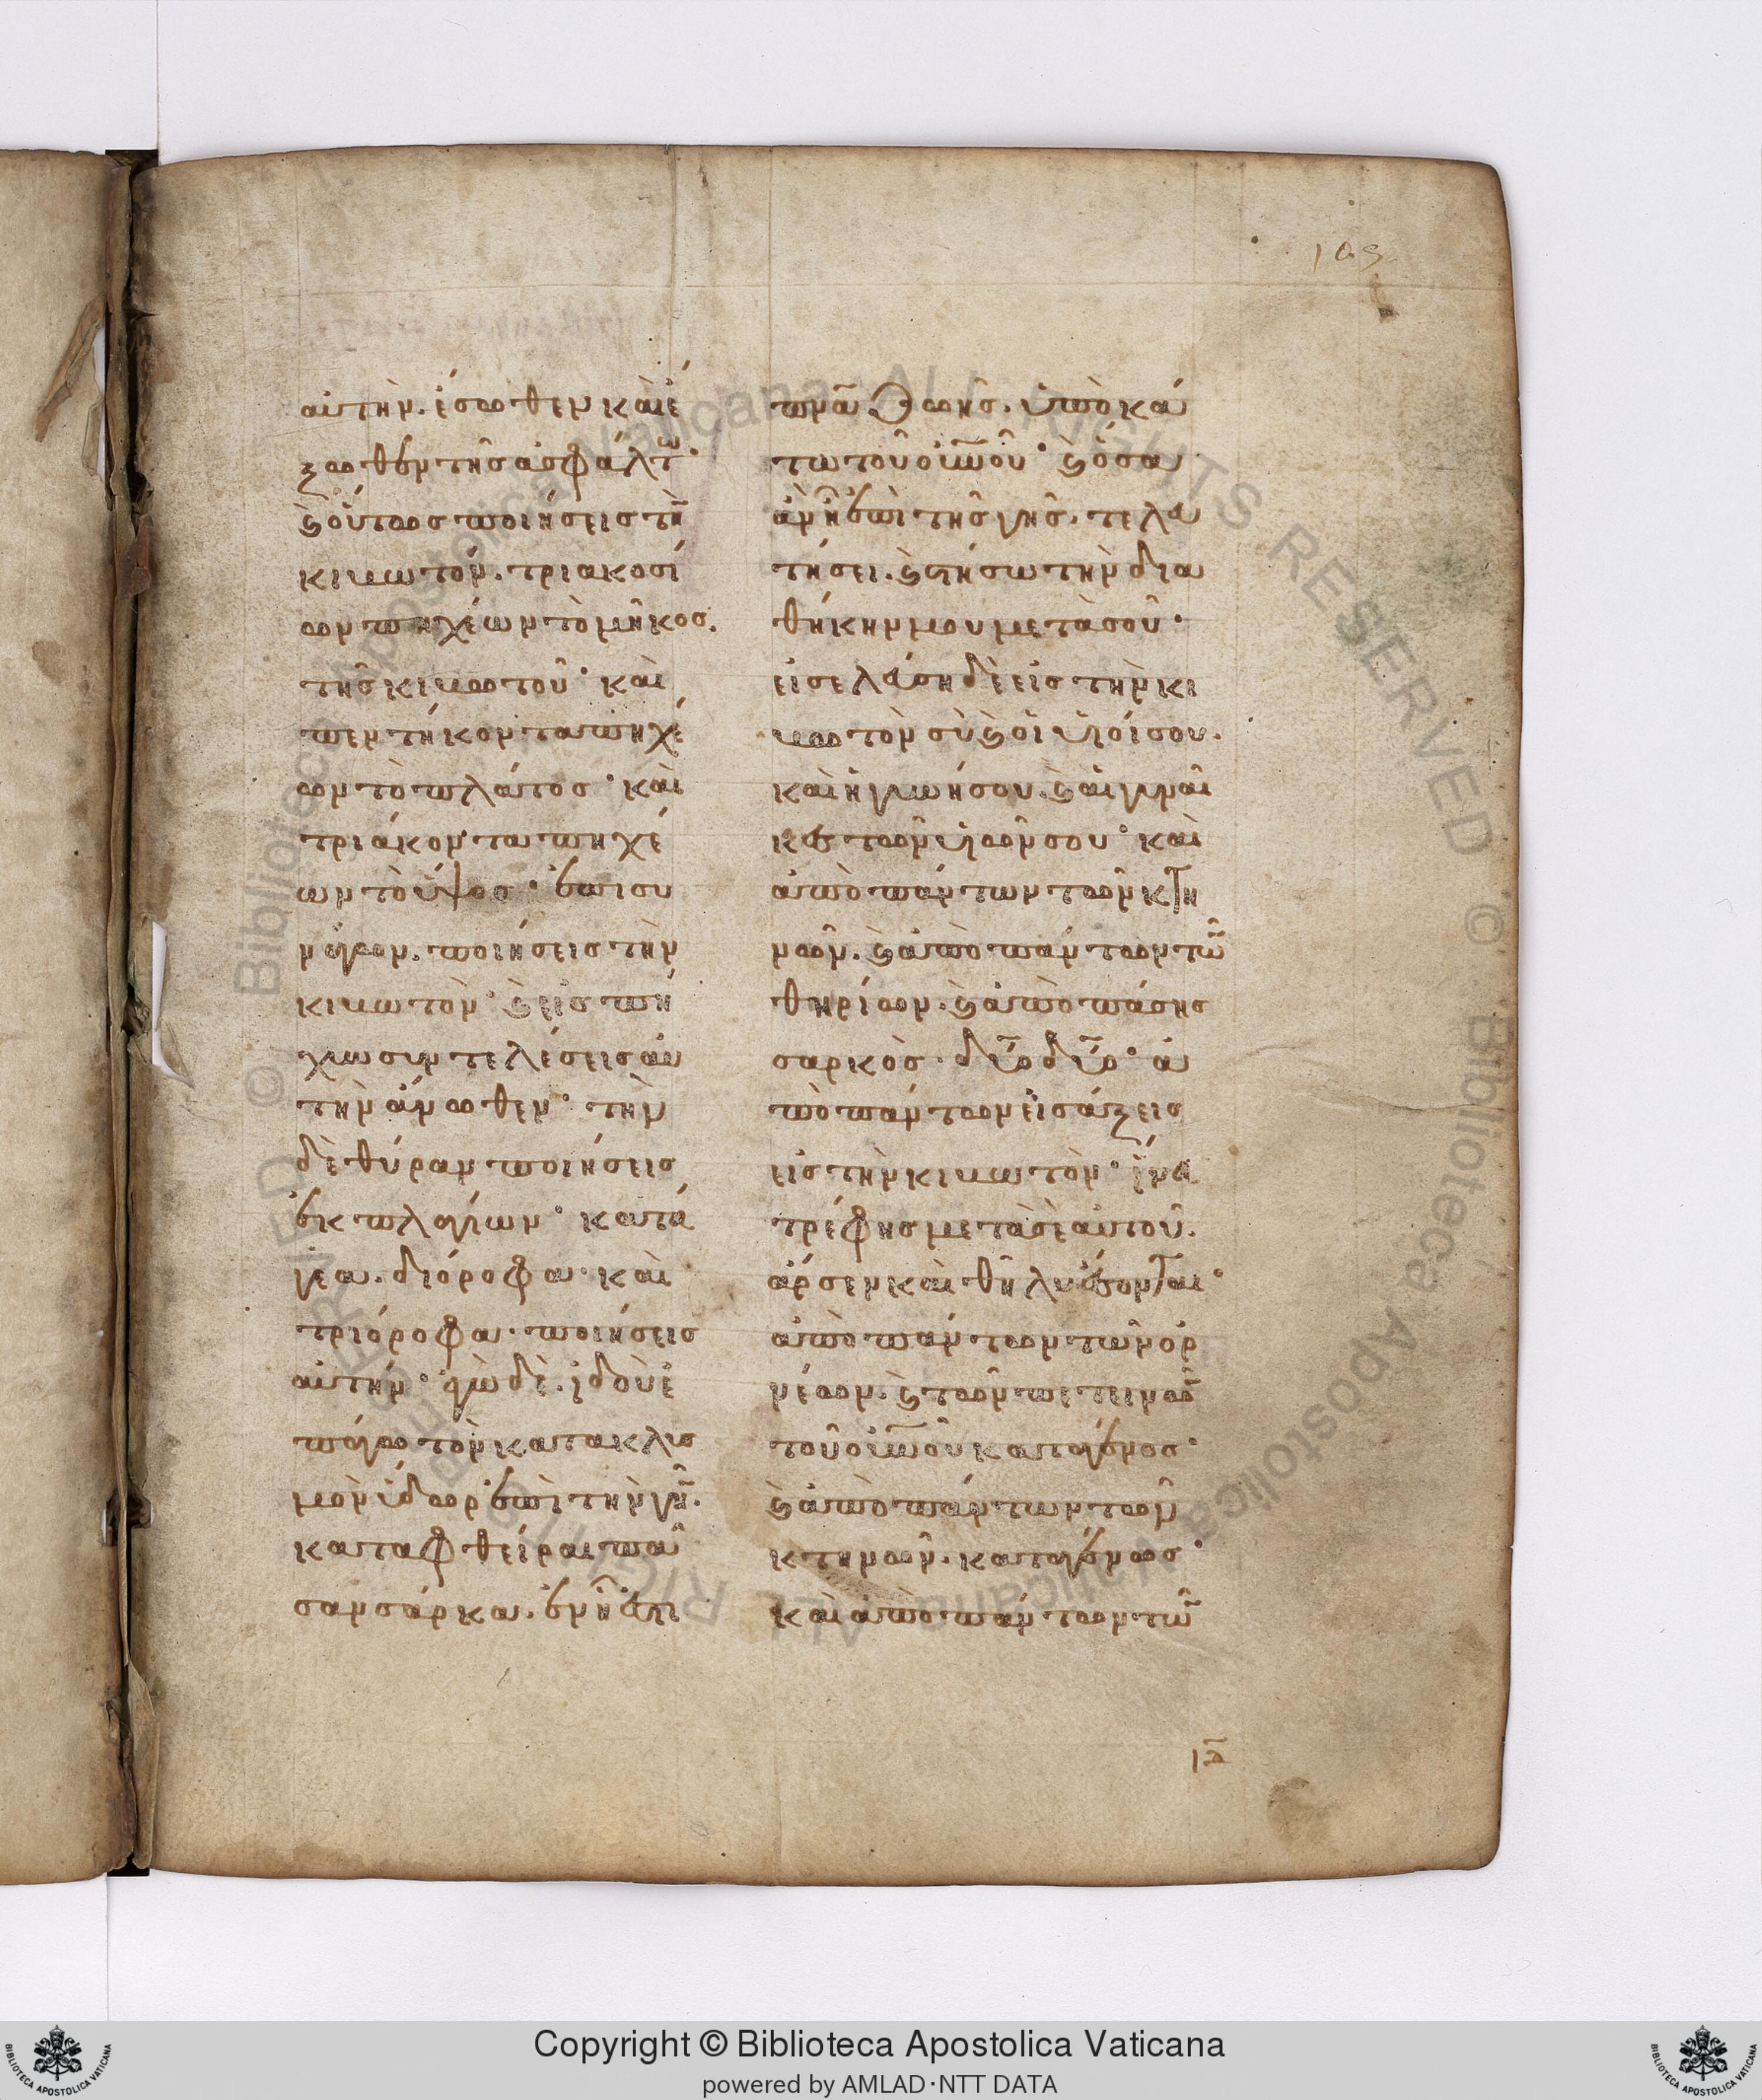 109
αὐτὴν. ἔσωθεν καὶ ἔ
ξωθεν τῆς ἀσφάλτ(ω)·
(καὶ) οὕτως ποιήσεις τὴ(ν)
κιβωτόν. τριακοσί
ων πηχέων τὸ μῆκος.
τῆς κιβωτοῦ· καὶ
πεντήκοντα πηχέ
ων τὸ πλάτος· καὶ
τριάκοντα πηχέ
ων τὸ ὕψος· ἐπισυ
νάγων. ποιήσεις τὴν
κιβωτὸν· (καὶ) εἰς πῆ
χυν συντελέσεις αὐ
τὴν ἄνωθεν· τὴν
δὲ θύραν ποιήσεις
ἐκ πλαγίων· κατά
γεα. διόροφα· καὶ
τριόροφα. ποιήσεις
αὐτήν· ἐγὼ δὲ. ἰδοὺ ἐ
πάγω τὸν κατακλυσ
μὸν ὕδωρ ἐπὶ τὴν γῆ(ν).
καταφθεῖραι πᾶ
σαν σάρκα. ἐν ᾗ ἐστι
πνα ζωῆς. ὑποκά
τω τοῦ οὐνοῦ· (καὶ) ὅσα
ἂν ᾖ ἐπὶ τῆς γῆς. τελευ
τήσει. (καὶ) στήσω τὴν δια
θήκην μου μετὰ σοῦ·
εἰσελεύση δὲ εἰς τὴν κι
βωτὸν σὺ (καὶ) οἱ υἱοί σου.
καὶ ἡ γυνή σου. (καὶ) αἱ γυναῖ
κες τῶν υἱῶν σου· καὶ
ἀπὸ πάντων τῶν κτη
νῶν. (καὶ) ἀπὸ πάντων τῶ(ν)
θηρίων. (καὶ) ἀπὸ πάσης
σαρκὸς. δύο δύο· ἀ
πὸ πάντων εἰσάξεις
εἰς τὴν κιβωτὸν· ἵνα
τρέφης μετὰ σεαυτοῦ.
ἄρσεν καὶ θῆλυ ἔσονται·
ἀπὸ πάντων τῶν ὀρ
νέων. (καὶ) τῶν πετεινῶ(ν)
τοῦ οὐνοῦ κατὰ γένος·
(καὶ) ἀπὸ πάντων τῶν
κτηνῶν. κατὰ γένως·
καὶ ἀπὸ πάντων τῶ(ν)
Copyright © Biblioteca Apostolica Vaticana
powered by AMLAD·NTT DATA